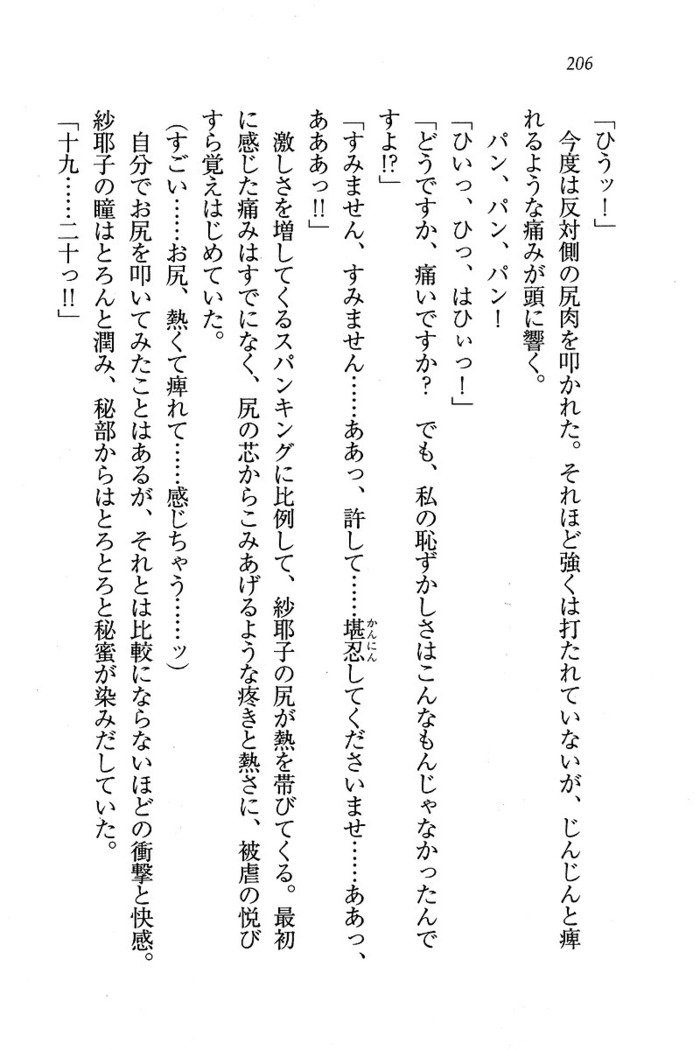 206
「ひうッ！」
　今度は反対側の尻肉を叩かれた。それほど強くは打たれていないが、じんじんと痺
れるような痛みが頭に響く。
　パン、パン、パン！
「ひいっ、ひっ、はひぃっ！」
「どうですか、痛いですか？　でも、私の恥ずかしさはこんなもんじゃなかったんで
すよ!?」
「すみません、すみません……ああっ、許して……堪忍してくださいませ……ああっ、
かんにん
あああっ!!」
　激しさを増してくるスパンキングに比例して、紗耶子の尻が熱を帯びてくる。最初
に感じた痛みはすでになく、尻の芯からこみあげるような疼きと熱さに、被虐の悦び
すら覚えはじめていた。
（すごい……お尻、熱くて痺れて……感じちゃう……ッ）
　自分でお尻を叩いてみたことはあるが、それとは比較にならないほどの衝撃と快感。
紗耶子の瞳はとろんと潤み、秘部からはとろとろと秘蜜が染みだしていた。
「十九……二十っ!!」